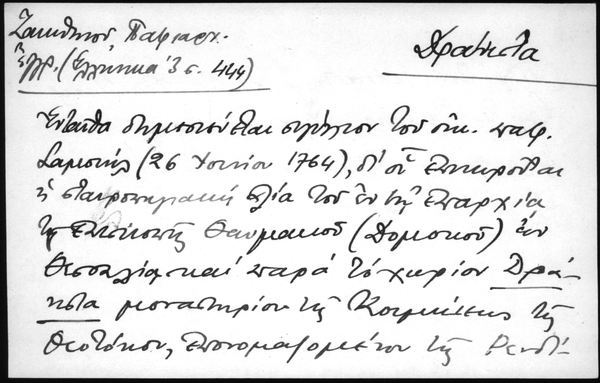 Ζακυθηνοῦ Πατριαρχ.
Δράκιστα
ἔγγρ. (Ἑλληνικά 3 σ. 444)
Ἐνταῦθα δημοσιεύεται σιγίλλιον τοῦ οἰκ. πατρ.
Σαμουήλ (26 Ἰουνίου 1764), δι' οὗ ἐπικυροῦται
ἡ σταυροπηγιακή ἀξία τοῦ ἐν τῇ ἐπαρχίᾳ
τῆς Ἐπισκοπῆς Θαυμακοῦ (Δομοκοῦ) ἐν
Θεσσαλίᾳ καί παρά τό χωρίον Δρά-
κιστα μοναστηρίου τῆς Κοιμήσεως τῆς
Θεοτόκου, ἐπονομαζομένου τῆς Ρεντί-